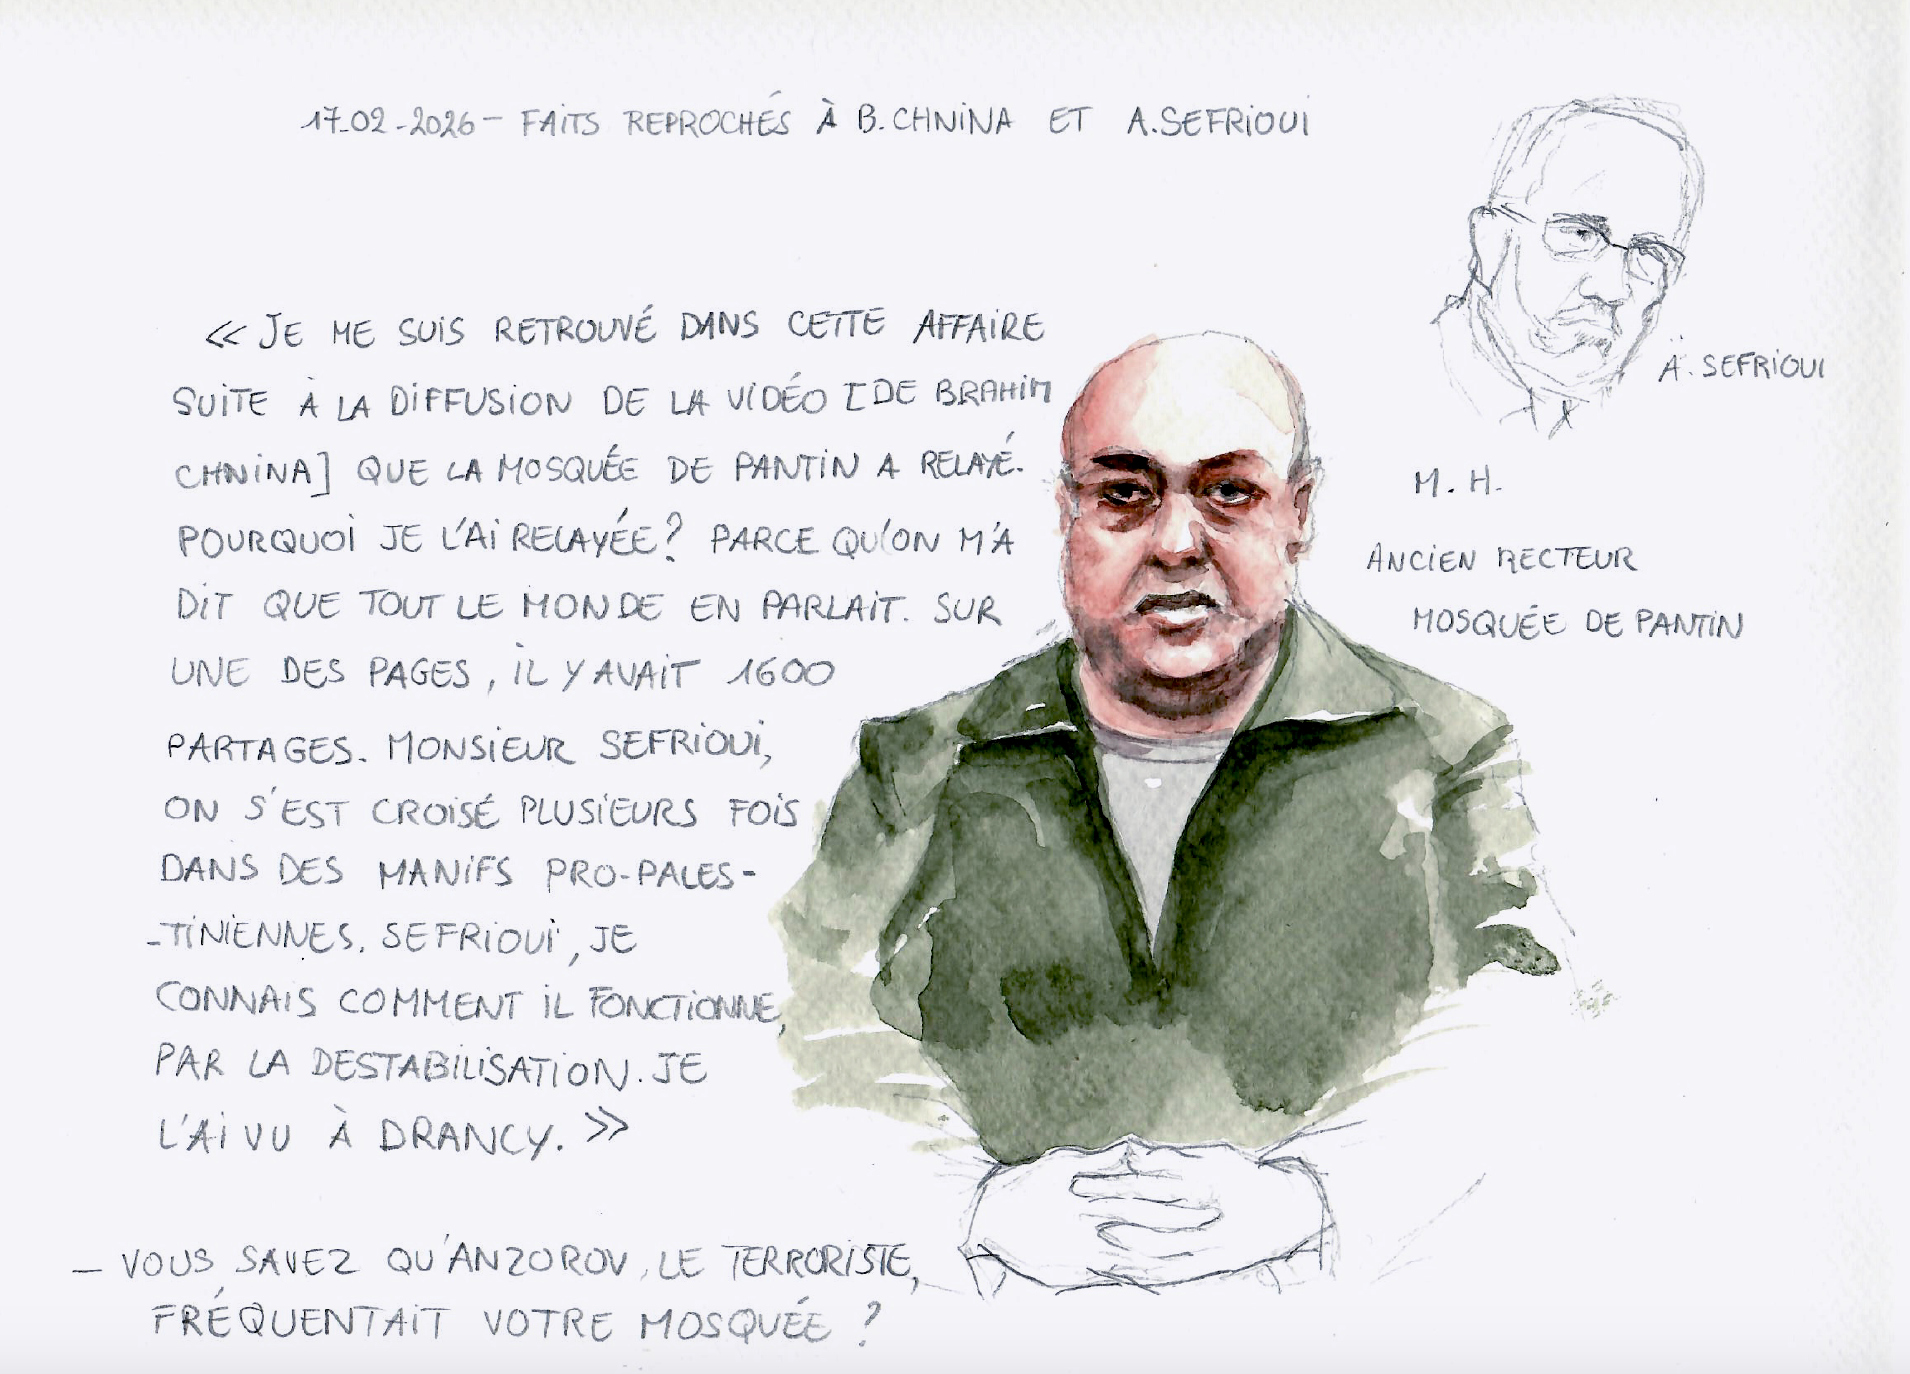 17-02-2026 - FAITS REPROCHÉS À B. CHNINA ET A. SEFRIOUI
« JE ME SUIS RETROUVÉ DANS CETTE AFFAIRE
SUITE À LA DIFFUSION DE LA VIDÉO [DE BRAHIM
CHNINA] QUE LA MOSQUÉE DE PANTIN A RELAYÉ.
POURQUOI JE L'AI RELAYÉE ? PARCE QU'ON M'A
DIT QUE TOUT LE MONDE EN PARLAIT. SUR
UNE DES PAGES, IL Y AVAIT 1600
PARTAGES. MONSIEUR SEFRIOUI,
ON S'EST CROISÉ PLUSIEURS FOIS
DANS DES MANIFS PRO-PALES-
-TINIENNES. SEFRIOUI, JE
CONNAIS COMMENT IL FONCTIONNE,
PAR LA DESTABILISATION. JE
L'AI VU À DRANCY. »
— VOUS SAVEZ QU'ANZOROV, LE TERRORISTE,
FRÉQUENTAIT VOTRE MOSQUÉE ?
A. SEFRIOUI
M. H.
ANCIEN RECTEUR
MOSQUÉE DE PANTIN